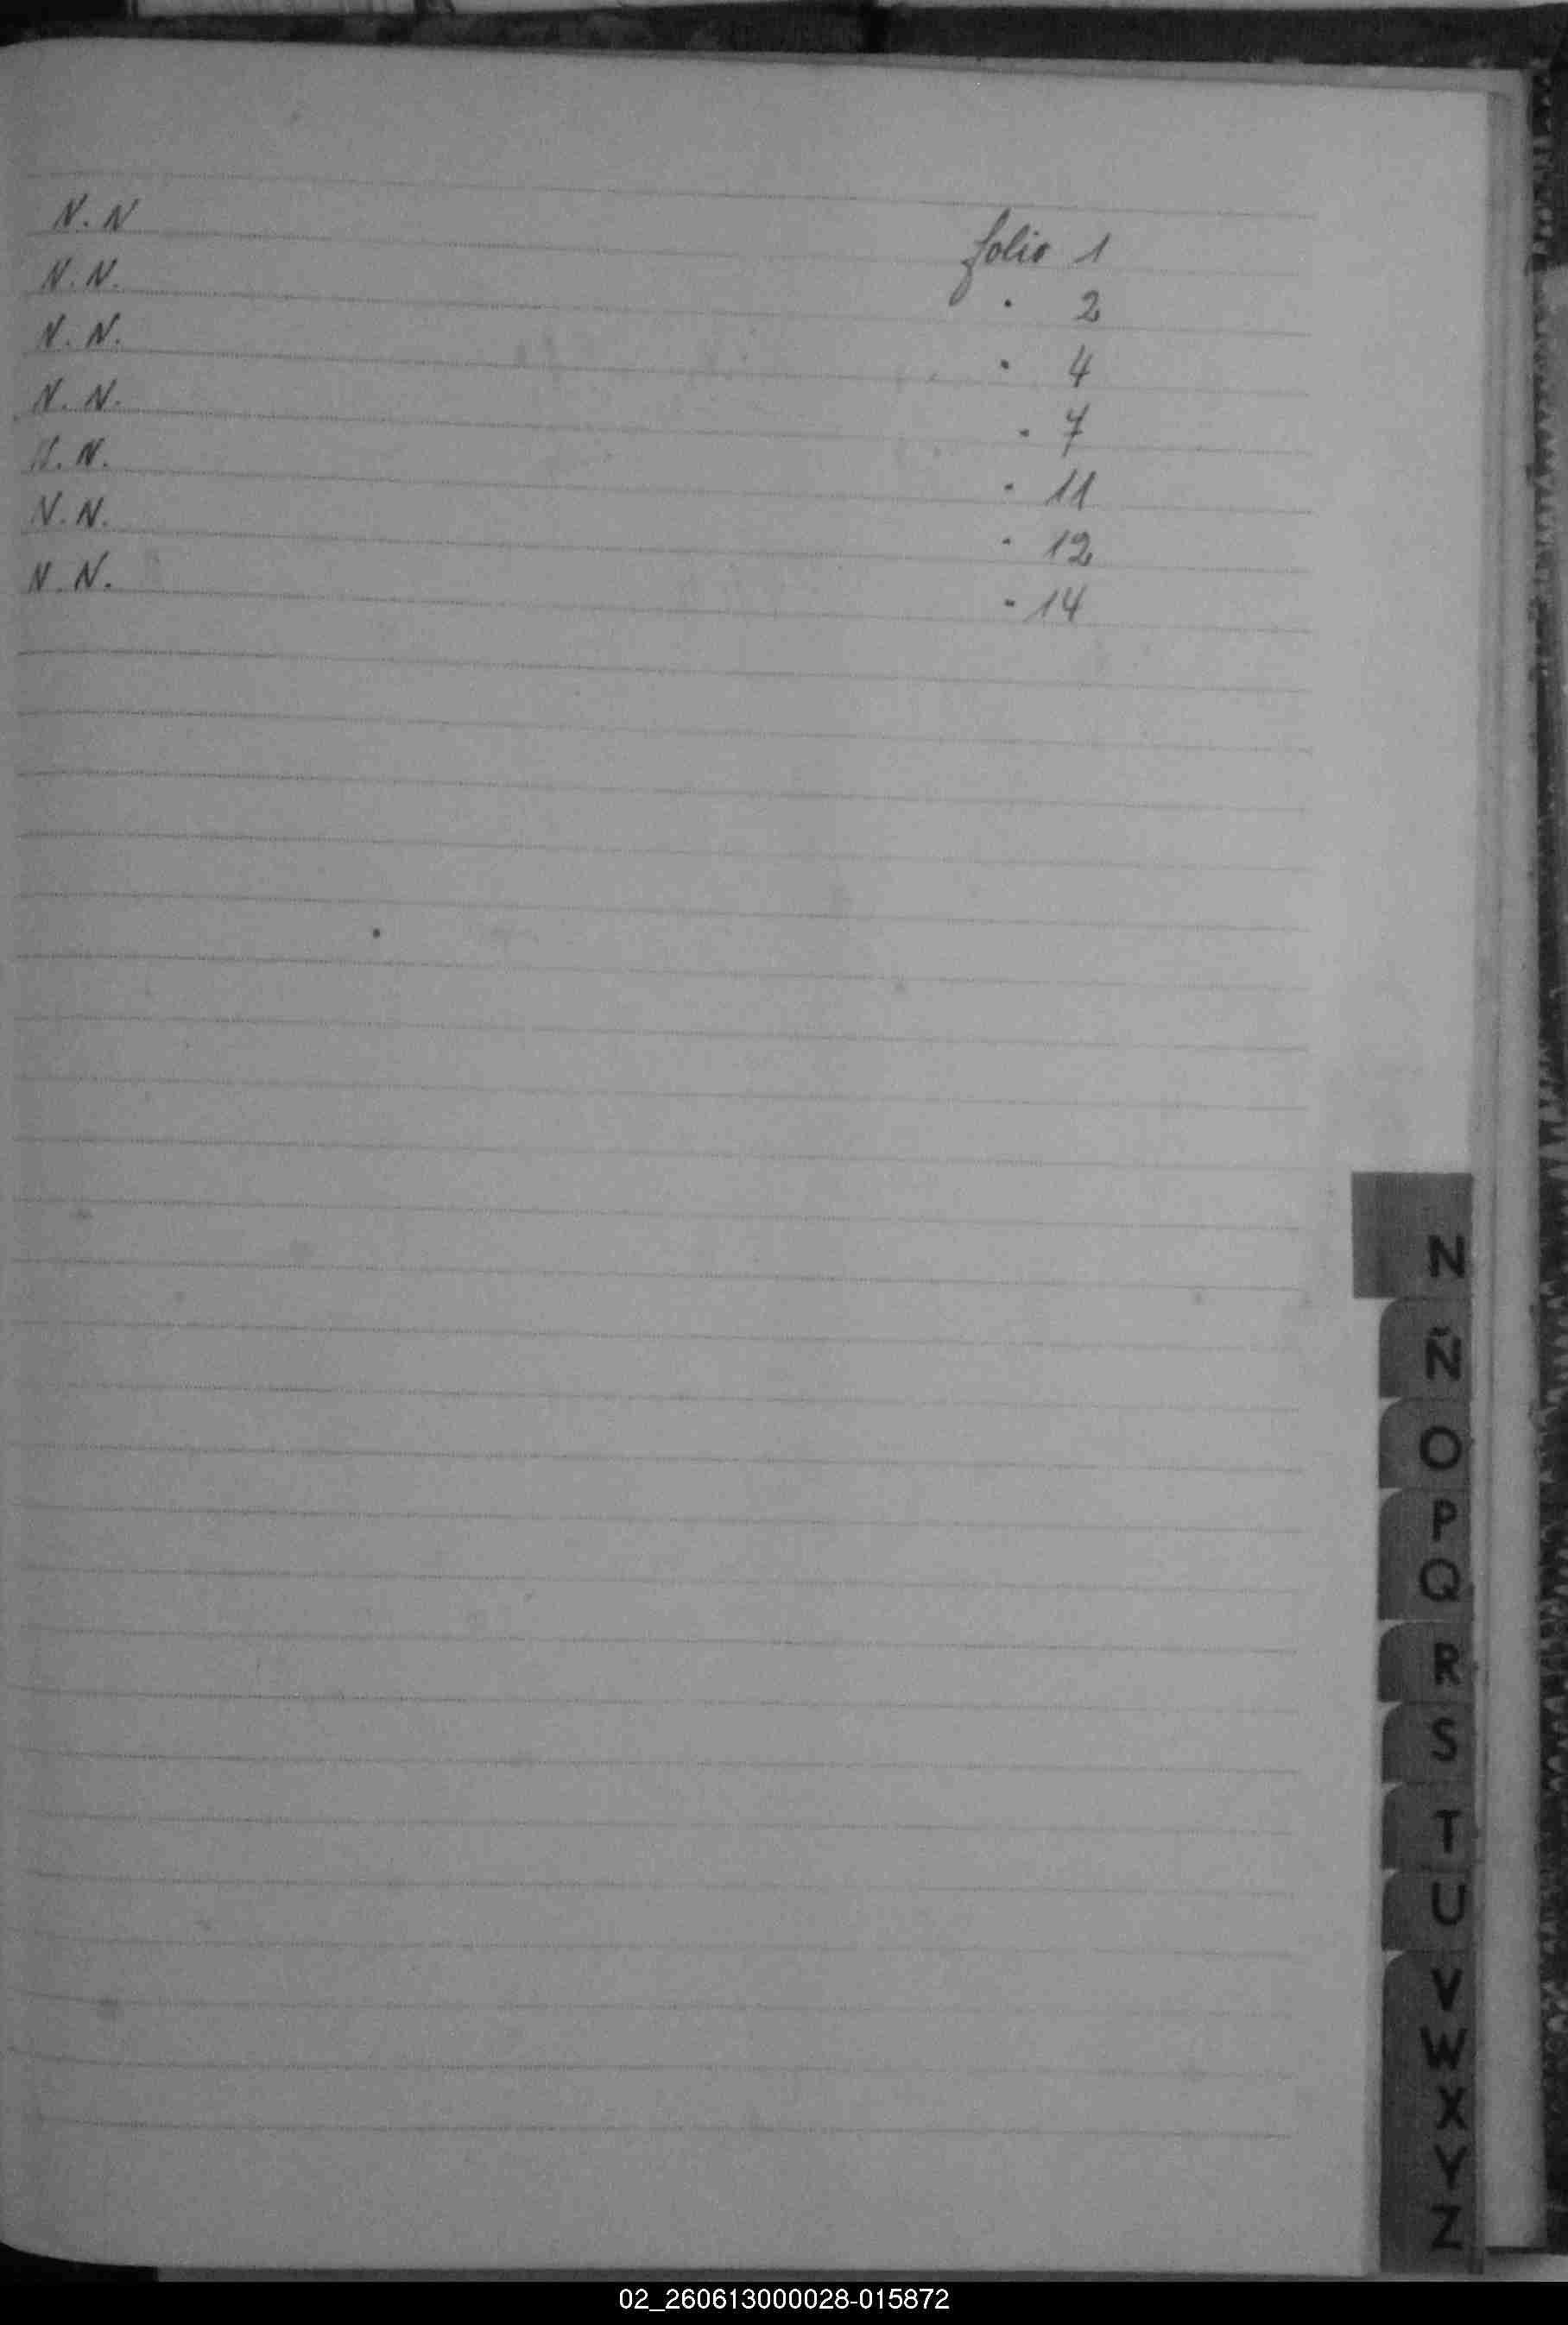 N. N folio 1
N. N. " 2
N. N. " 4
N. N. " 7
N. N. " 11
N. N. " 12
N. N. " 14
N
Ñ
O
P
Q
R
S
T
U
V
W
X
Y
Z
02_260613000028-015872